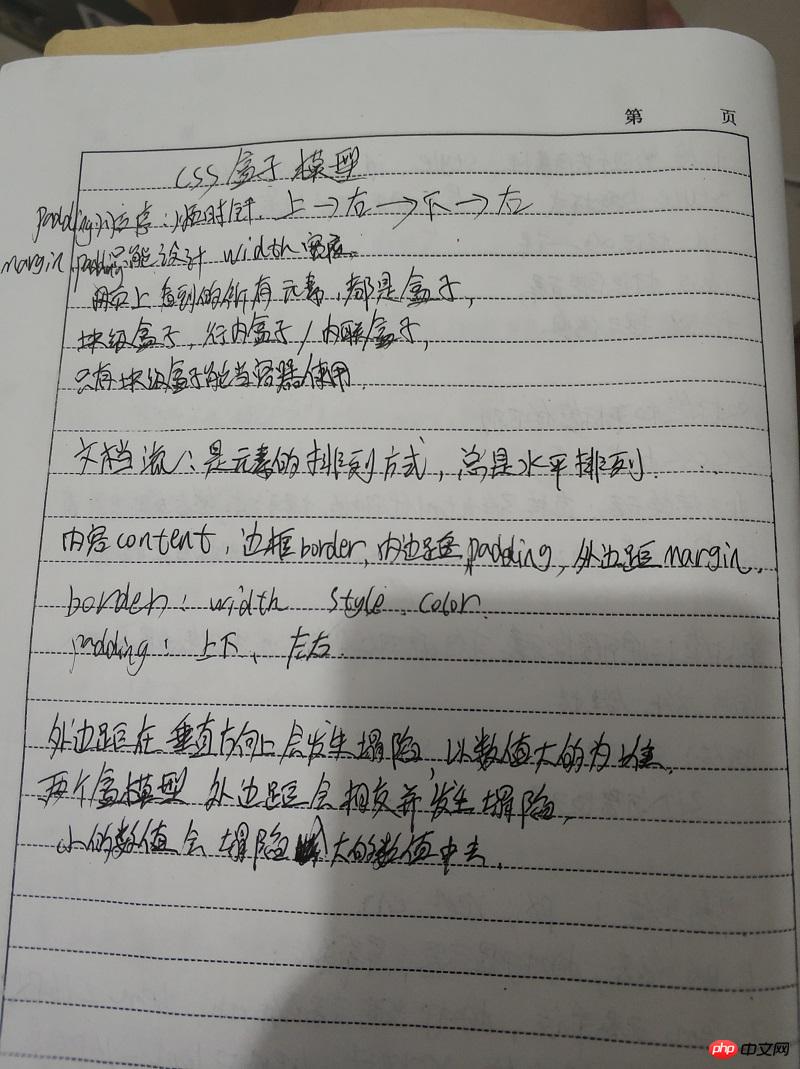 第 页
CSS盒子模型
padding小注意:顺时针.上→右→下→左
margin,padding只能设计 width宽度。
网页上看到的所有元素,都是盒子,
块级盒子,行内盒子/内联盒子,
只有块级盒子能当容器使用.
文档流:是元素的排列方式,总是水平排列.
内容content,边框border,内边距padding,外边距margin.
border: width style color.
padding: 上下、左右.
外边距在垂直方向上会发生塌陷,以数值大的为准.
两个盒模型 外边距会相交并发生塌陷,
小的数值会塌陷 大的数值中去.
php 中文网